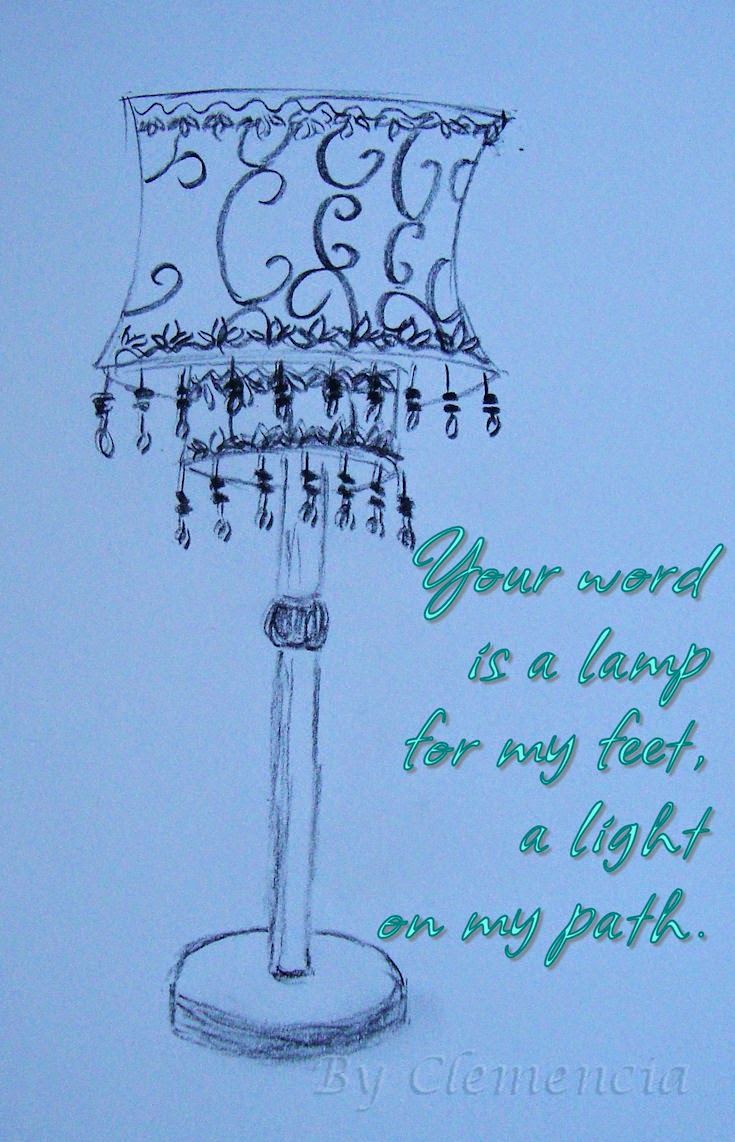 Your word
is a lamp
for my feet,
a light
on my path.
By Clemencia